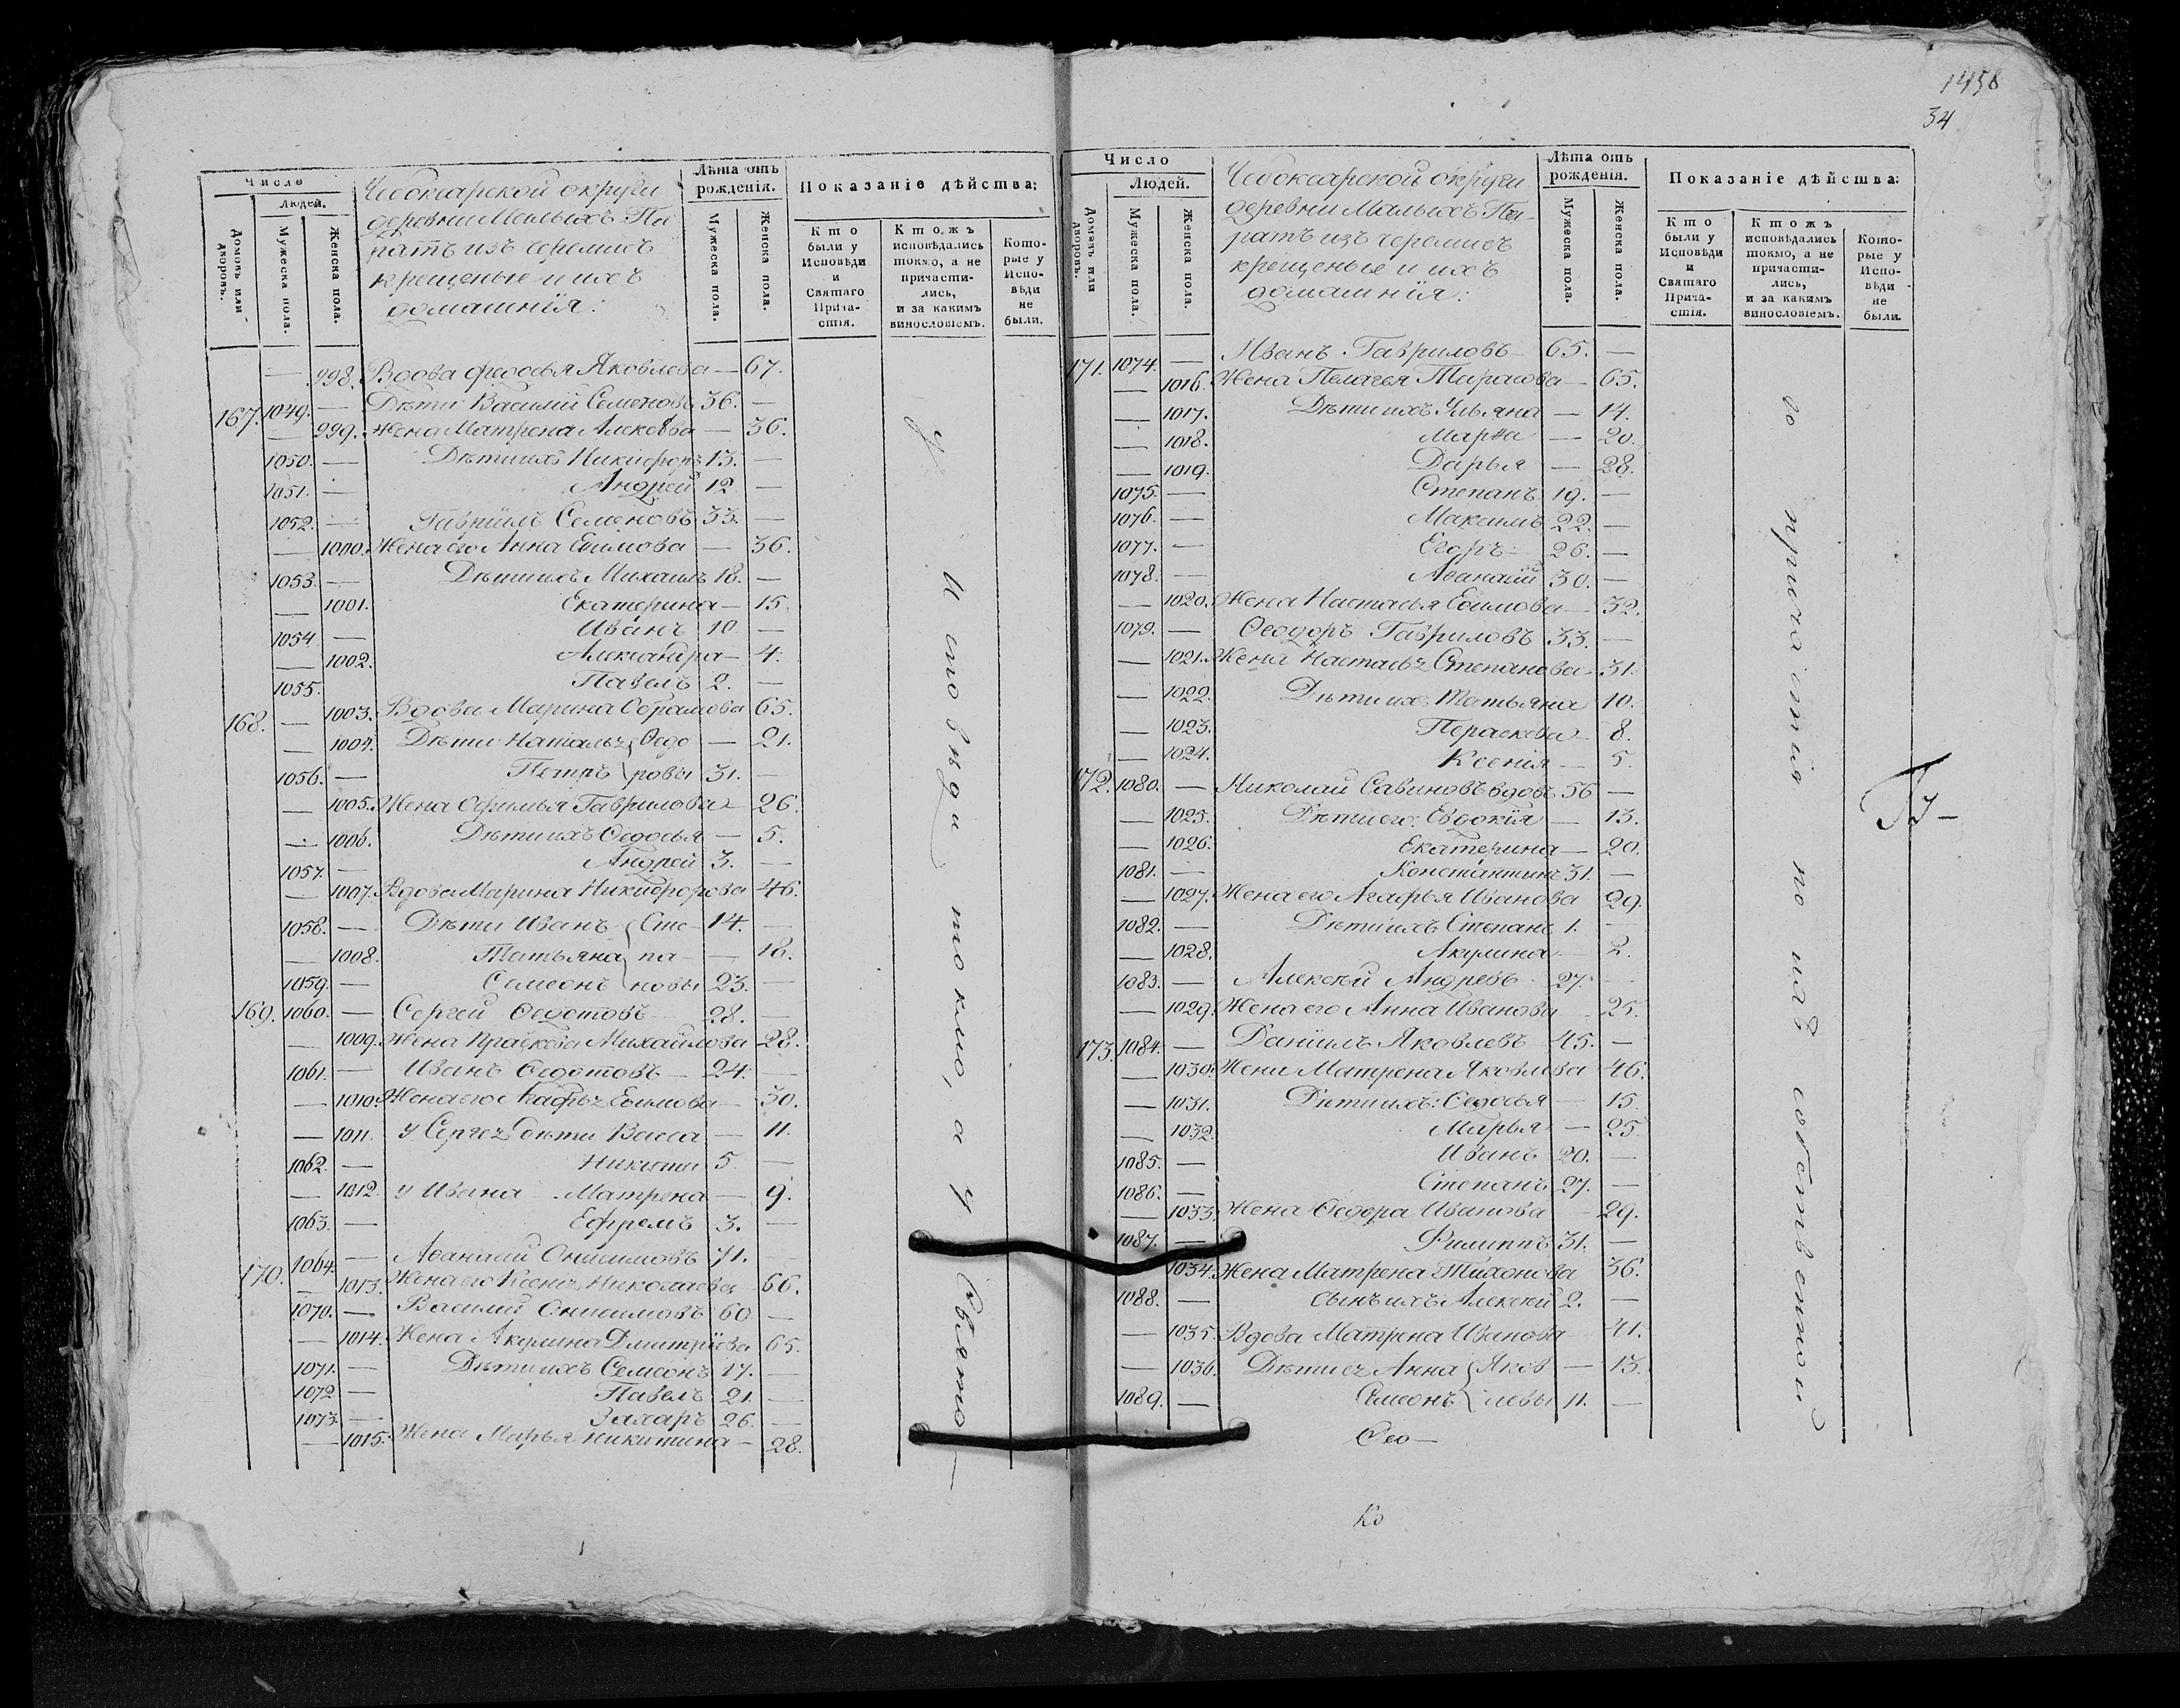 1458
34
Число
Людей.
Домовъ или дворовъ.
Мужеска пола.
Женска пола.
Чебоксарской округи
деревни Малыхъ Па
ратъ изъ черемисъ
крещеные и ихъ
домашнїя:
Лѣта отъ рожденїя.
Мужеска пола.
Женска пола.
Показанїе дѣйства:
Кто были у Исповѣди и Святаго Прича-стїя.
Ктожъ исповѣдались токмо, а не причасти-лись, и за какимъ винословїемъ.
Кото-рые у Испо-вѣди не были.
— 998. Вдова Феодосья Яковлева — 67.
167. 1049. — Дѣти Василїй Семеновъ 36. —
— 999. жена Матрена Алексѣва — 36.
1050. — Дѣти ихъ Никифоръ 13. —
1051. — Андрей 12 —
1052. — Гаврїилъ Семеновъ 33. —
— 1000. Жена его Анна Еѳимова — 36.
1053. — Дѣти ихъ Михаилъ 18. —
— 1001. Екатерина — 15.
1054 — Иванъ 10 —
— 1002. Александра — 4.
1055. Павелъ 2. —
168. — 1003. Вдова Марина Абрамова 65.
— 1004. Дѣти Наталья Ѳедо — 21.
1056. — Петръ ровы 31. —
— 1005. Жена Офимья Гаврилова — 26.
— 1006. Дѣти ихъ Ѳедосья — 5.
1057. — Андрей 3. —
— 1007. Вдова Марина Никифорова 46.
1058. — Дѣти Иванъ Сте 14. —
— 1008. Татьяна па — 18.
1059. — Семеонъ новы 23. —
169. 1060. — Сергей Ѳедотовъ 28. —
— 1009. Жена Праскова Михайлова 28.
1061. — Иванъ Ѳедотовъ — 24. —
— 1010. Жена его Агафья Еѳимова — 30.
— 1011. У Сергея дѣти Васса — 11.
1062. — Никита 5 —
— 1012. У Ивана — Матрена — 9.
1063. — Ефремъ 3. —
170. 1064. — Аѳанасїй Онисимовъ 71. —
— 1013. Жена его Ксенїя Николаева 66.
1070. — Василїй Онисимовъ 60 —
— 1014. Жена Акулина Дмитрїева 65.
1071. — Дѣти ихъ Семеонъ 17. —
1072 — Павелъ 21. —
1073. — Захаръ 26. —
— 1015. Жена Марья Никитина — 28.
У Исповѣди токмо, а у Свято—
Число
Людей.
Домовъ или дворовъ.
Мужеска пола.
Женска пола.
Чебоксарской округи
деревни Малыхъ Па-
ратъ изъ черемисъ
крещеные и ихъ
домашнїя:
Лѣта отъ рожденїя.
Мужеска пола.
Женска пола.
Показанїе дѣйства:
Кто были у Исповѣди и Святаго Прича-стїя.
Ктожъ исповѣдались токмо, а не причасти-лись, и за какимъ винословїемъ.
Кото-рые у Испо-вѣди не были.
171. 1074. — Иванъ Гавриловъ — 65. —
— 1016. Жена Пелагея Тарасова — 65.
— 1017. Дѣти ихъ Ульяна — 14.
— 1018. Марѳа — 20.
— 1019. Дарья — 28.
1075. — Степанъ 19. —
1076. — Максимъ 22. —
1077. — Егоръ 26. —
1078. — Аѳанасїй 30. —
— 1020. Жена Настасья Еѳимова — 32.
1079. — Ѳеодоръ Гавриловъ 33. —
— 1021. Жена Настасья Степанова — 31.
— 1022. Дѣти ихъ Татьяна 10.
— 1023. Пераскева — 8.
— 1024. Ксенїя — 5.
172. 1080. — Николай Савиновъ вдовъ 56 —
— 1025. Дѣти его: Евдокїя — 13.
— 1026. Екатерина — 20.
1081. — Константинъ 31. —
— 1027. Жена его Агафья Иванова 29.
1082. — Дѣти ихъ Степанъ 1. —
— 1028. Акулина — 2.
1083. — Алексѣй Андревъ 27. —
— 1029. Жена его Анна Иванова — 25.
173. 1084. — Данїилъ Яковлевъ 45. —
— 1030. Жена Матрена Яковлева 46.
— 1031. Дѣти ихъ: Ѳедосья — 15
— 1032. Марья — 25
1085. — Иванъ 20. —
1086. — Степанъ 27. —
— 1033. Жена Ѳедора Иванова — 29.
1087. — Филиппъ 31. —
1034. Жена Матрена Тихонова 36.
1088. — сынъ ихъ Алексѣй 2. —
— 1035. Вдова Матрена Иванова 41.
— 1036. Дѣти ея Анна Яков — 13.
1089. — Семеонъ левы 11. —
Ѳео—
го причастия по ихъ собственной